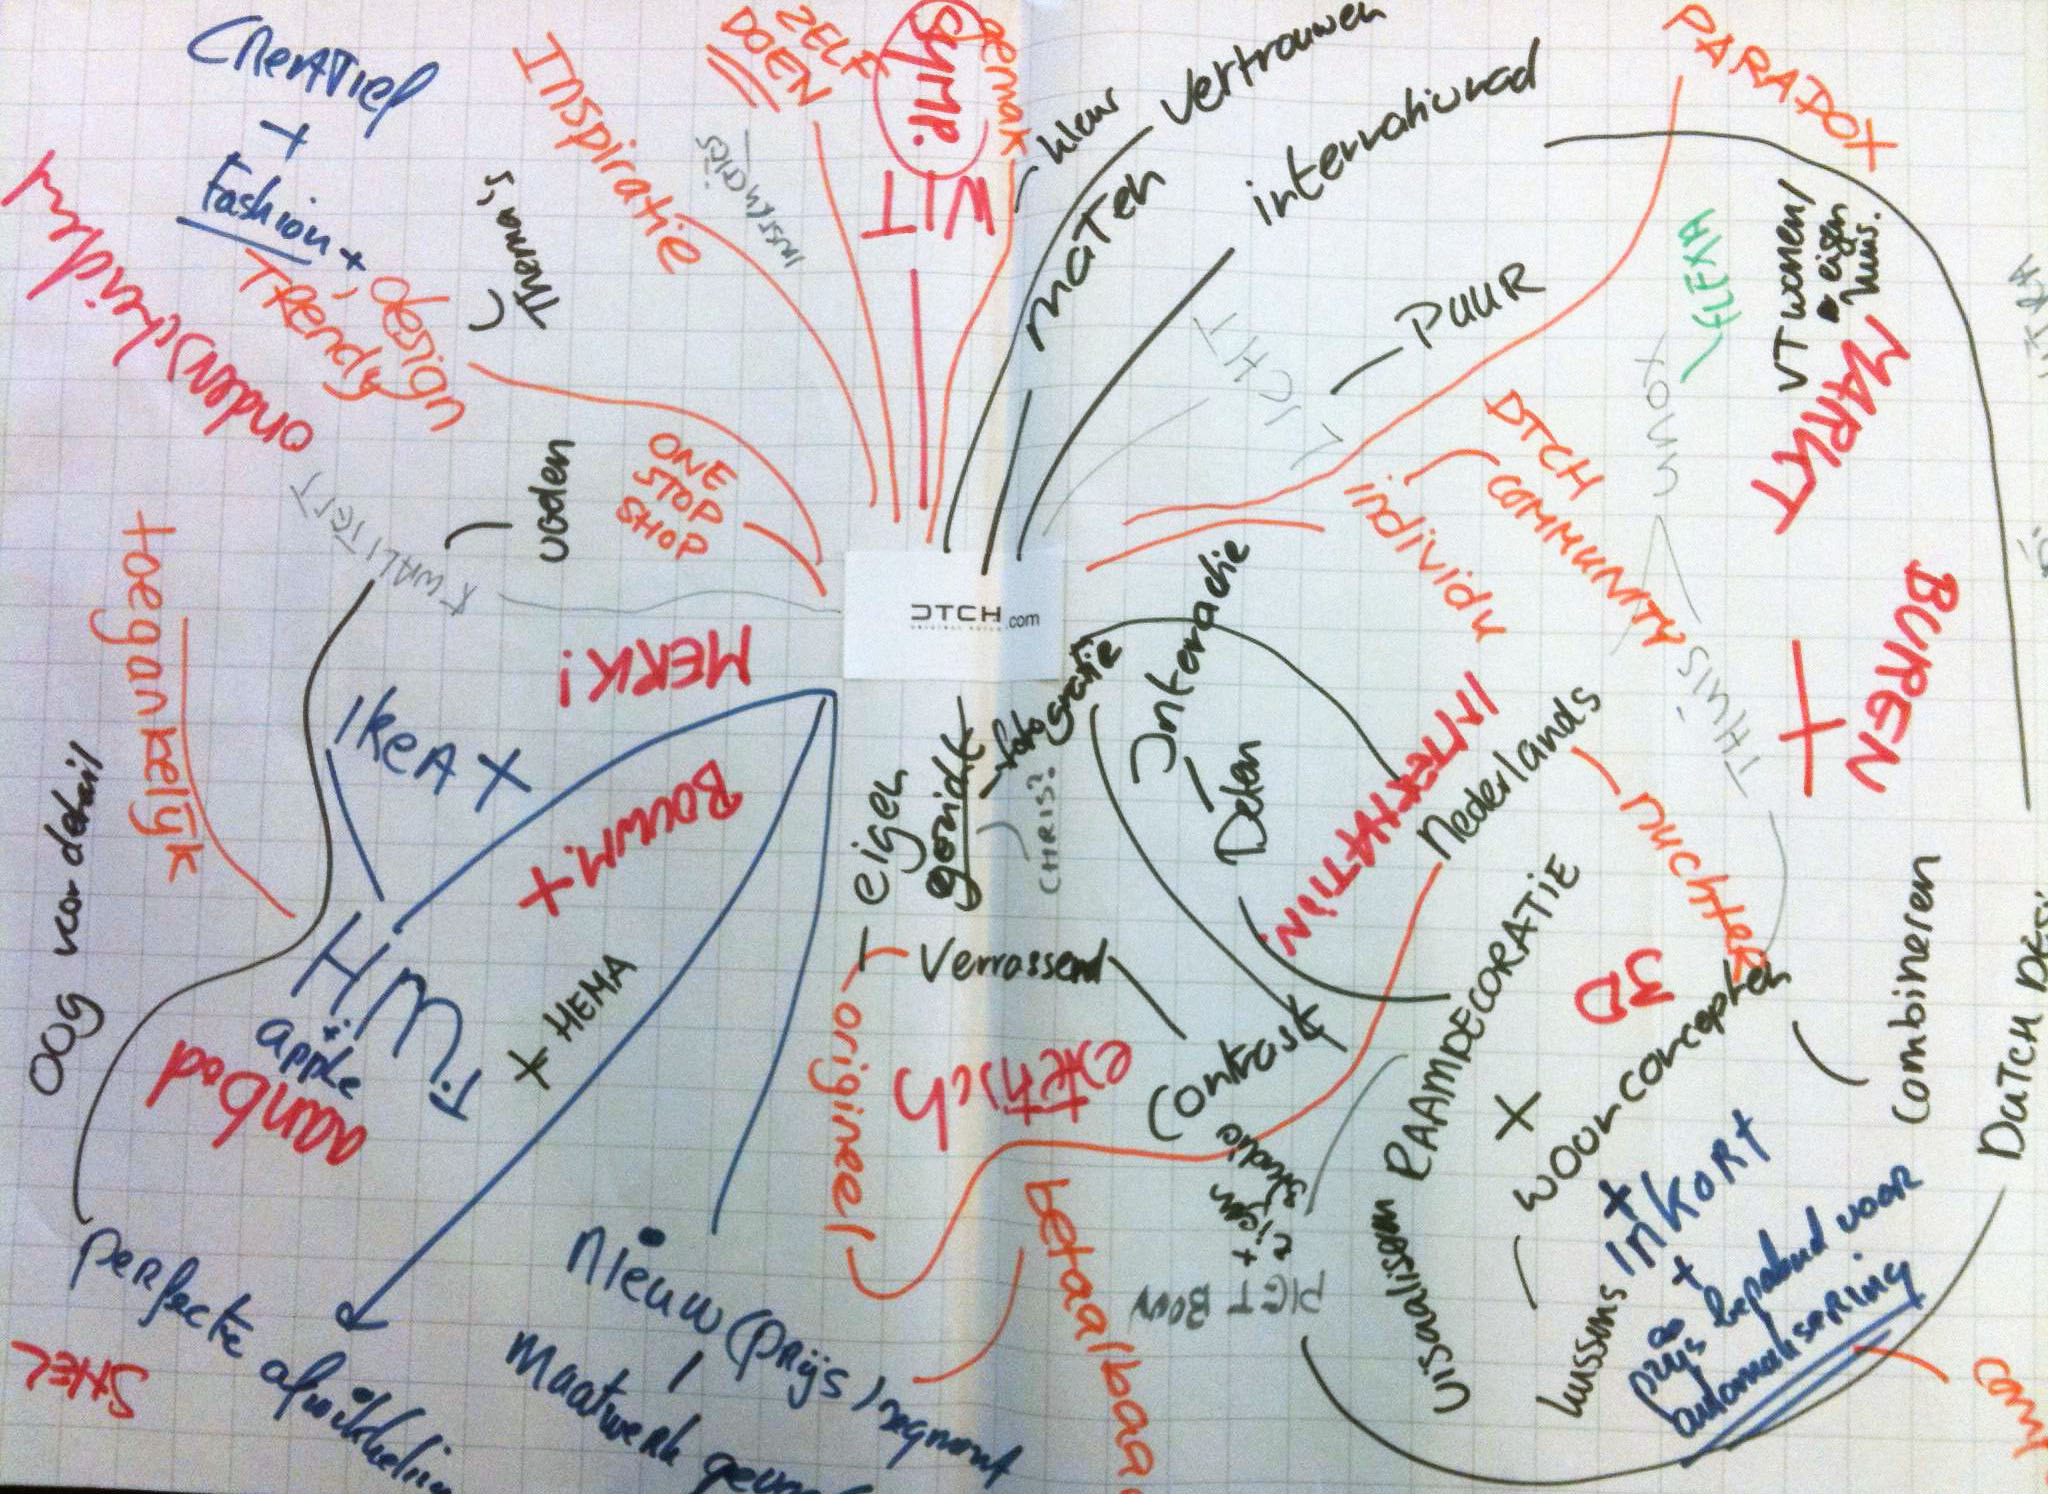 CREATIEF
+
Fashion +
TRendy
design
onderscheidend
Thema's
Inspiratie
ZELF
DOEN
INSTRUCTIES
SYMP.
WIT
gemak
kleur
Vertrouwen
maten
internationaal
PARADOX
LICHT
PUUR
FLEXA
VT wonen/
eigen
huis.
MARKT
UNOX
DTCH
COMMUNITY
individu
THUIS
BUREN
KWALITEIT
voelen
ONE
STOP
SHOP
toegankelijk
MERK!
DTCH.com
IKEA +
BOUWM. +
H M.
+
apple
aanbod
+ HEMA
oog voor detail
perfecte afwikkeling
SNEL
nieuw (prijs) segment
maatwerk
eigen
gezicht
fotografie
CHRIS?
Interactie
Delen
INTERNATION.
Nederlands
nuchter
Verrassend
origineel
esthetisch
Contrast
+ eigen studio
betaalbaar
PIET BOON
RAAMDECORATIE
visualiseren
3D
+
woonconcepten
kussens
+
INKORT
+
prijs bepalend voor
automatisering
Combineren